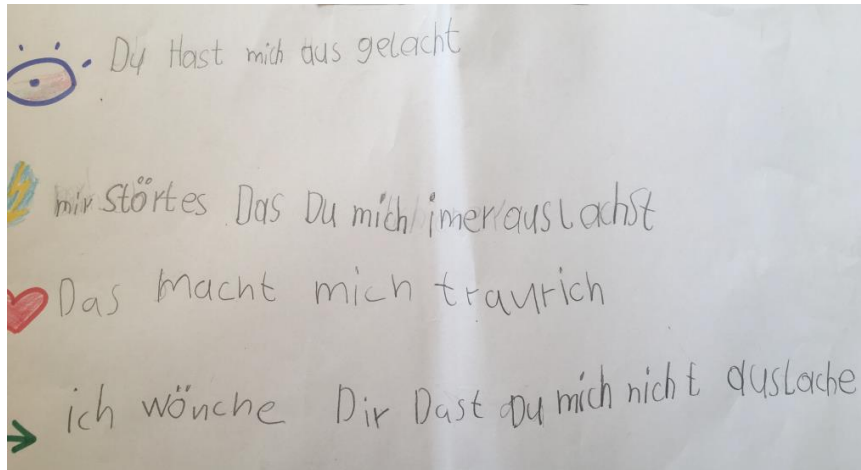 Du Hast mich aus gelacht
mir störtes Das Du mich imer auslachst
Das macht mich traurich
ich wönche Dir Dast Du mich nicht auslache